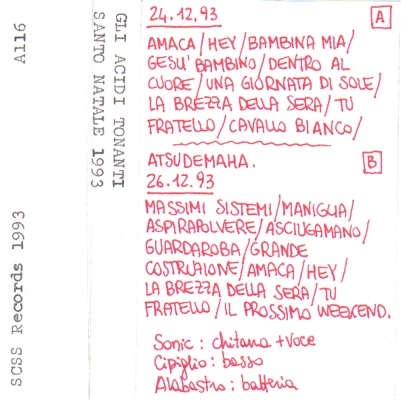 A116
SCSS Records 1993
GLI ACIDI TONANTI
SANTO NATALE 1993
24.12.93
A
AMACA/HEY/BAMBINA MIA/
GESU' BAMBINO/DENTRO AL
CUORE/UNA GIORNATA DI SOLE/
LA BREZZA DELLA SERA/TU
FRATELLO/CAVALLO BIANCO/
ATSUDEMAHA.
B
26.12.93
MASSIMI SISTEMI/MANIGLIA/
ASPIRAPOLVERE/ASCIUGAMANO/
GUARDAROBA/GRANDE
COSTRUZIONE/AMACA/HEY/
LA BREZZA DELLA SERA/TU
FRATELLO/IL PROSSIMO WEEKEND.
Sonic: chitarra + voce
Cipiglio: basso
Alabastro: batteria